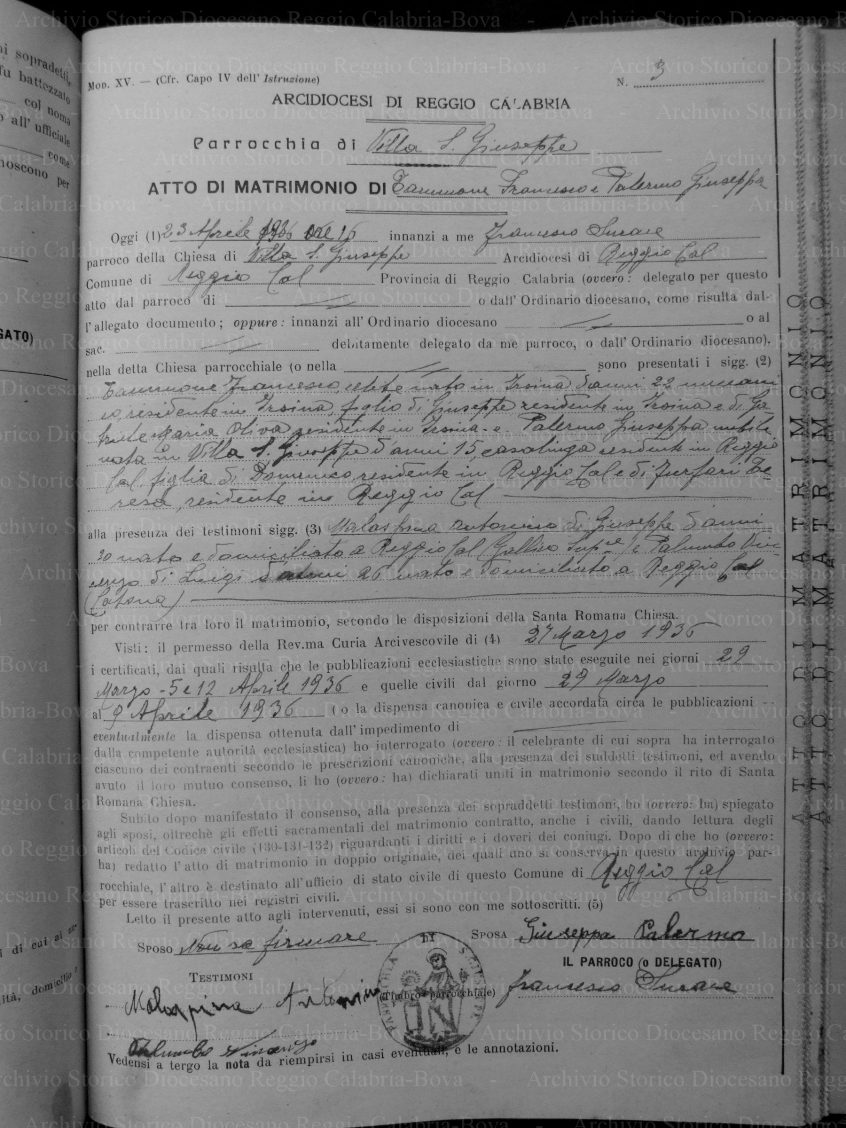 Mon. XV. — (Cfr. Capo IV dell' Istruzione)
N. 3
ARCIDIOCESI DI REGGIO CALABRIA
Parrocchia di Villa S. Giuseppe
ATTO DI MATRIMONIO DI Francesco e Palermo Giuseppa
Oggi (1) 23 Aprile 1936 ore 16 innanzi a me Francesco
parroco della Chiesa di Villa S. Giuseppe Arcidiocesi di Reggio Cal
Comune di Reggio Cal Provincia di Reggio Calabria (ovvero: delegato per questo
atto dal parroco di o dall' Ordinario diocesano, come risulta dal-
l'allegato documento; oppure: innanzi all' Ordinario diocesano o al
sac. debitamente delegato da me parroco, o dall' Ordinario diocesano),
nella detta Chiesa parrocchiale (o nella sono presentati i sigg. (2)
Francesco celibe nato in Troina d'anni 22
residente in Troina figlio di Giuseppe residente in Troina e di
Maria Oliva residente in Troina e Palermo Giuseppa nubile
nata in Villa S. Giuseppe d'anni 15 casalinga residente in Reggio
Cal figlia di Domenico residente in Reggio Cal e di Furfari Te-
resa residente in Reggio Cal
alla presenza dei testimoni sigg. (3) Malaspina Antonino di Giuseppe d'anni
30 nato e domiciliato a Reggio Cal (Gallico Supre) e Palumbo Vin-
cenzo di Luigi d'anni 26 nato e domiciliato a Reggio Cal
(Catona)
per contrarre tra loro il matrimonio, secondo le disposizioni della Santa Romana Chiesa.
Visti: il permesso della Rev.ma Curia Arcivescovile di (4) 27 Marzo 1936
i certificati, dai quali risulta che le pubblicazioni ecclesiastiche sono state eseguite nei giorni 29
Marzo - 5 e 12 Aprile 1936 e quelle civili dal giorno 29 Marzo
al 9 Aprile 1936 (o la dispensa canonica e civile accordata circa le pubblicazioni
eventualmente la dispensa ottenuta dall'impedimento di
dalla competente autorità ecclesiastica) ho interrogato (ovvero: il celebrante di cui sopra ha interrogato
ciascuno dei contraenti secondo le prescrizioni canoniche, alla presenza dei suddetti testimoni, ed avendo
avuto il loro mutuo consenso, li ho (ovvero: ha) dichiarati uniti in matrimonio secondo il rito di Santa
Romana Chiesa.
Subito dopo manifestato il consenso, alla presenza dei sopraddetti testimoni, ho (ovvero: ha) spiegato
agli sposi, oltrechè gli effetti sacramentali del matrimonio contratto, anche i civili, dando lettura degli
articoli del Codice civile (130-131-132) riguardanti i diritti e i doveri dei coniugi. Dopo di che ho (ovvero:
ha) redatto l'atto di matrimonio in doppio originale, dei quali uno si conserva in questo archivio par-
rocchiale, l'altro è destinato all'ufficio di stato civile di questo Comune di Reggio Cal
per essere trascritto nei registri civili.
Letto il presente atto agli intervenuti, essi si sono con me sottoscritti. (5)
SPOSO Non sa firmare SPOSA Giuseppa Palermo
TESTIMONI
IL PARROCO (o DELEGATO)
Malaspina Antonino (Timbro parrocchiale) Francesco
Palumbo Vincenzo
Vedensi a tergo la nota da riempirsi in casi eventuali, e le annotazioni.
ATTO DI MATRIMONIO
ATTO DI MATRIMONIO
Archivio Storico Diocesano Reggio Calabria-Bova